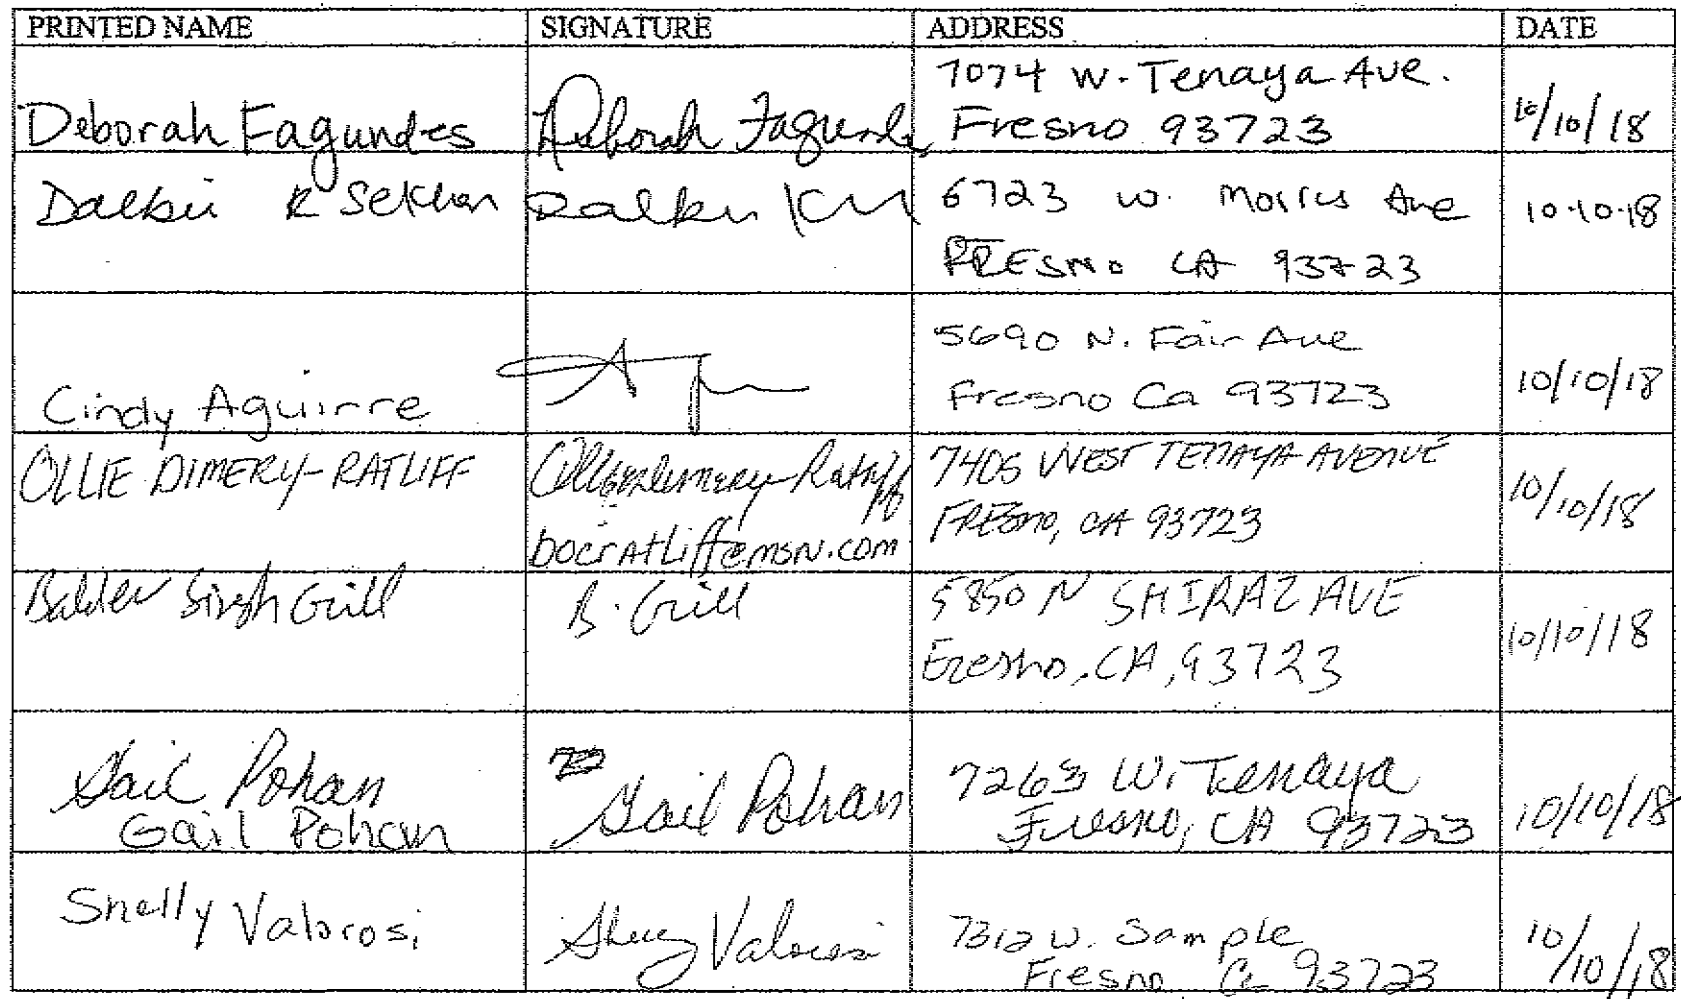 PRINTED NAME SIGNATURE ADDRESS DATE
Deborah Fagundes Deborah Fagundes 7074 W. Tenaya Ave.
Fresno 93723 10/10/18
Dalbir K Sekhon Dalbir 6723 W. Morris Ave 10-10-18
FRESNO CA 93723
Cindy Aguirre 5690 N. Fair Ave
Fresno Ca 93723 10/10/18
OLLIE DIMERY-RATLIFF Ollie Dimery-Ratliff 7405 WEST TENAYA AVENUE
bocratliff@msn.com FRESNO, CA 93723 10/10/18
Baldev Singh Gill B. Gill 5850 N SHIRAZ AVE
Fresno, CA, 93723 10/10/18
Gail Pohan Gail Pohan 7263 W. Tenaya
Gail Pohan Fresno, CA 93723 10/10/18
Shelly Valorosi Valorosi 7312 W. Sample
Fresno Ca 93723 10/10/18